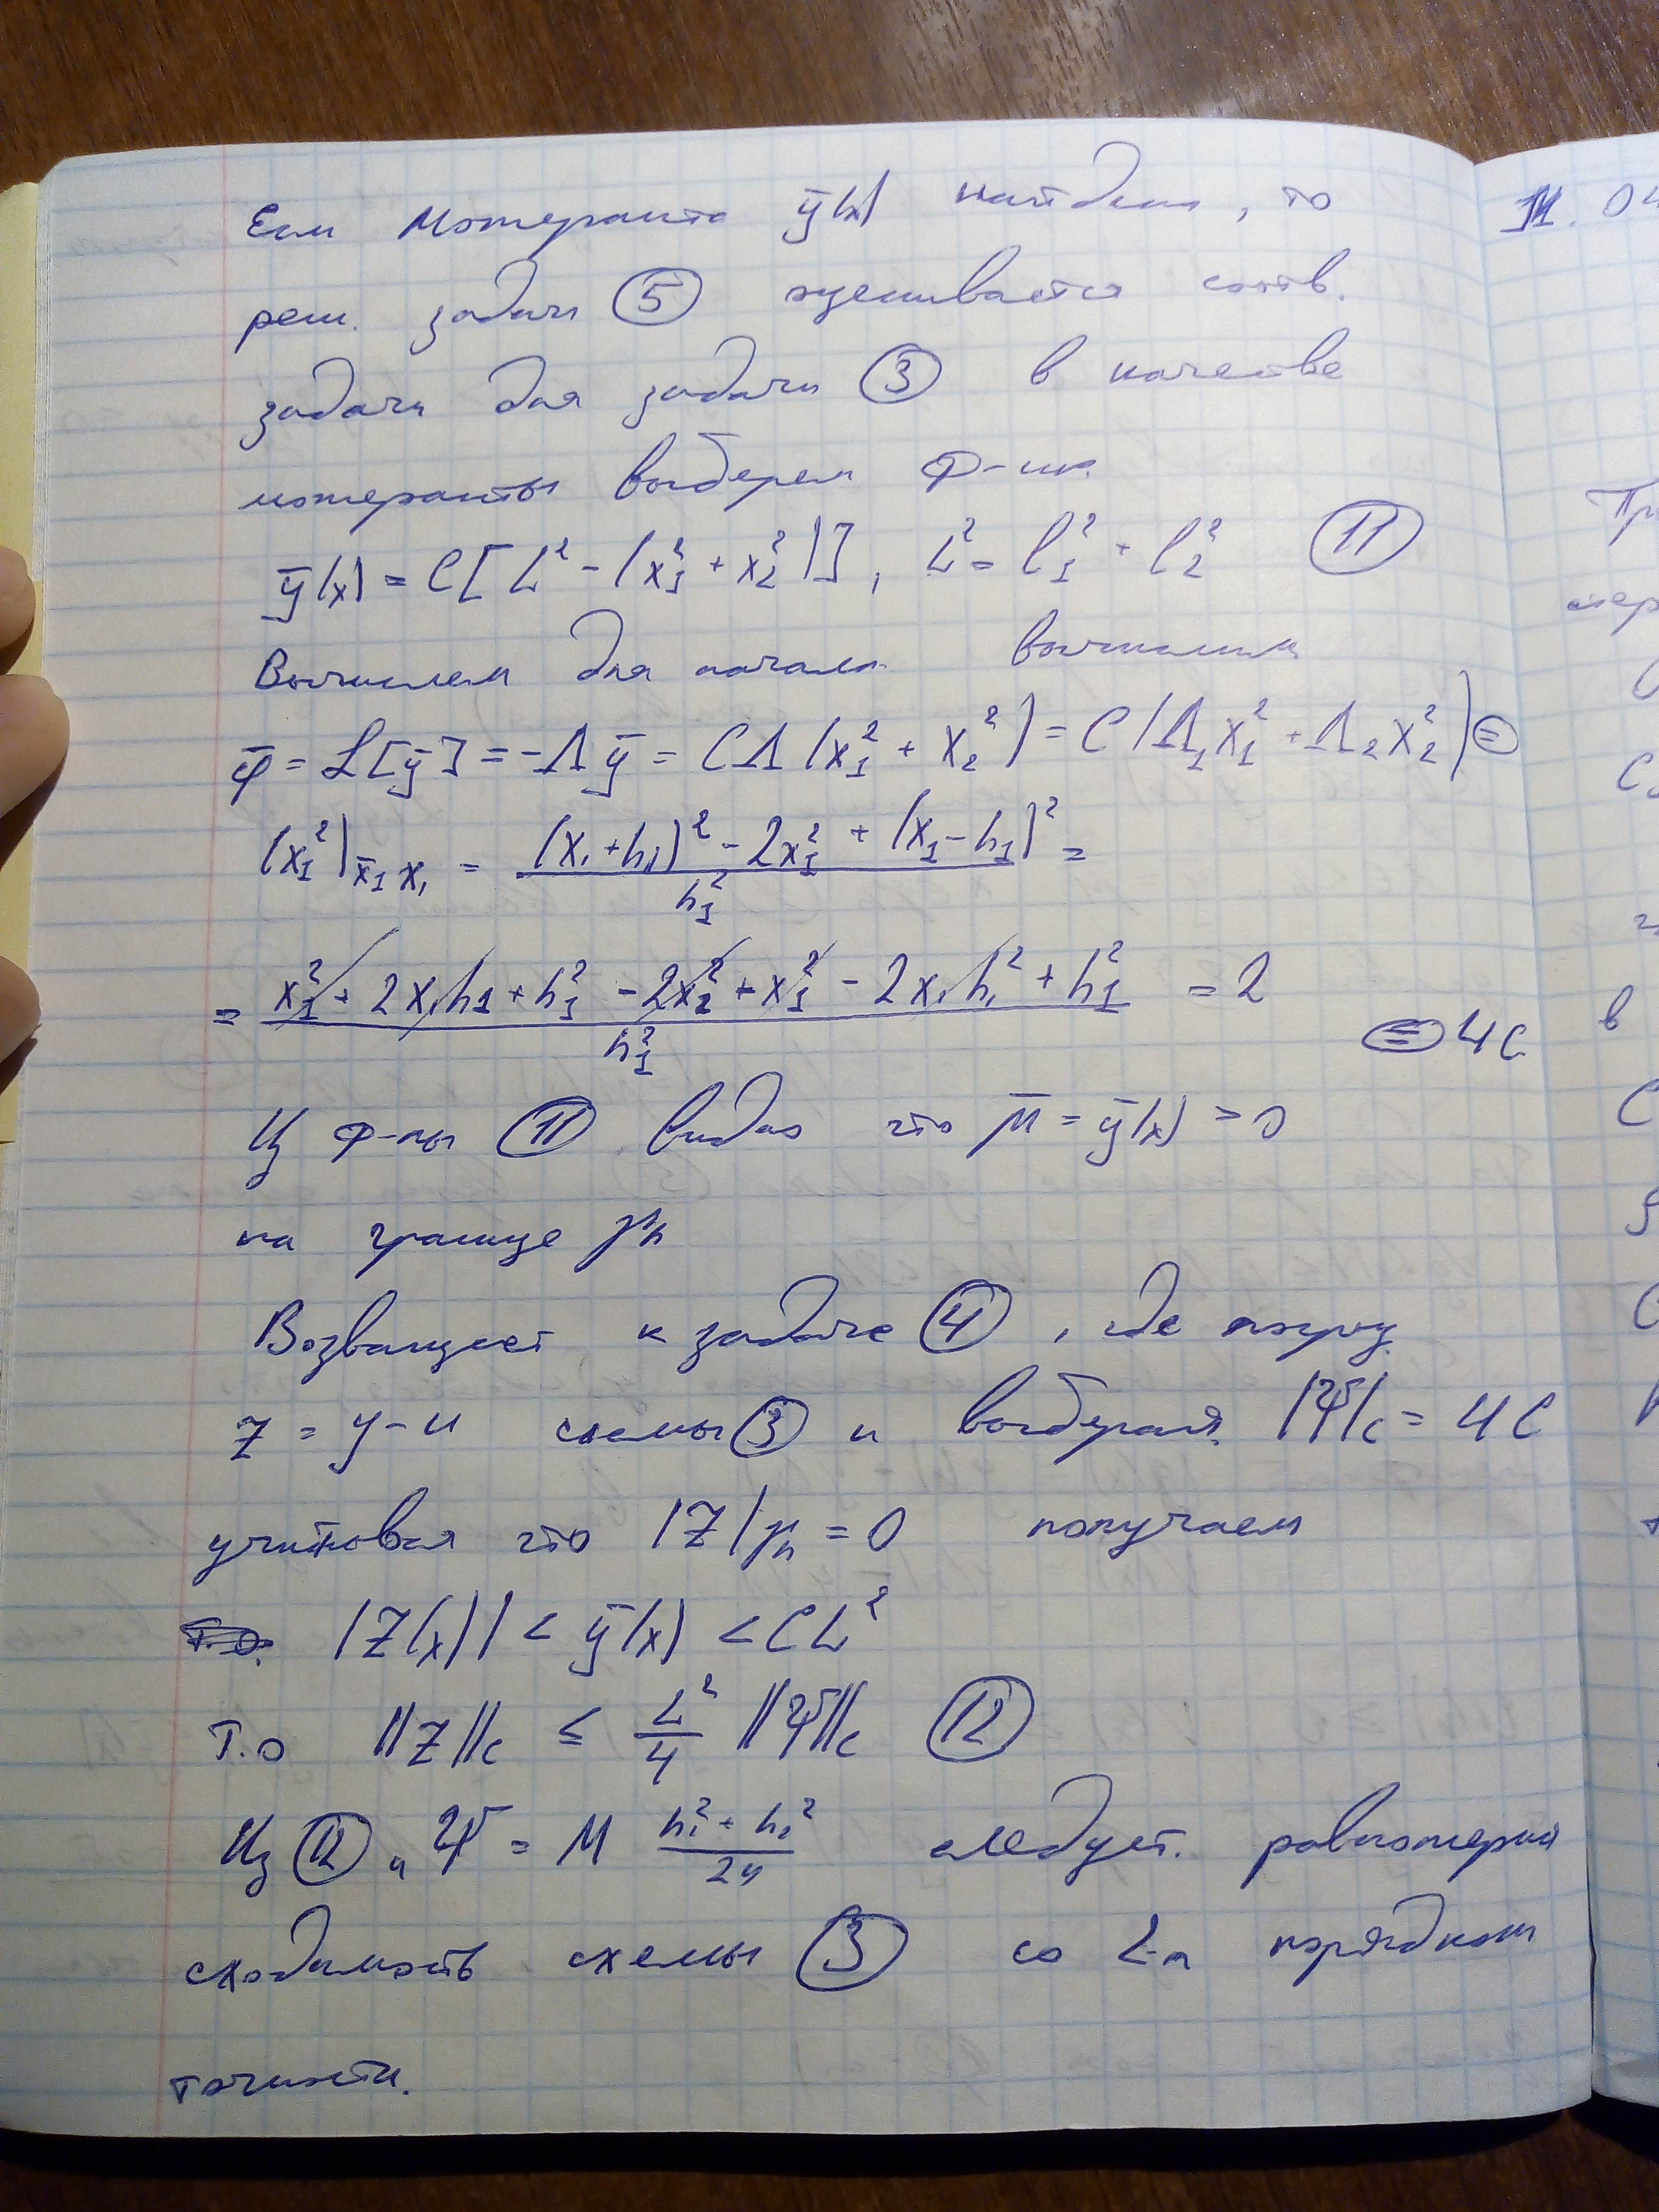 Если можеранта ȳ(x) найдена, то
реш. задачи ⑤ оценивается соотв.
задачи для задачи ③ в качестве
можеранты выберем ф-ию
ȳ(x) = C[L² - (x₁² + x₂²)], L² = l₁² + l₂² ⑪
Вычислем для начала вычислим
φ̄ = ℒ[ȳ] = -Λȳ = CΛ(x₁² + x₂²) = C(Λ₁x₁² + Λ₂x₂²) ⊜
(x₁²)x̄₁x₁ = ((x₁+h₁)² - 2x₁² + (x₁-h₁)²)/h₁² =
= (x₁² + 2x₁h₁ + h₁² - 2x₁² + x₁² - 2x₁h₁² + h₁²)/h₁² = 2
⊜ 4C
Из ф-лы ⑪ видно что μ̄ = ȳ(x) > 0
на границе γh
Возващает к задаче ④, где погр.
z = y - u схемы ③ и выберая |Ψ|c = 4C
учитовая что |Z|γh = 0 получаем
|Z(x)| < ȳ(x) < CL²
т.о ||Z||c ≤ L²/4 ||Ψ||c ⑫
Из ⑫ и Ψ = M (h₁² + h₂²)/24 следует. равномерная
сходимость схемы ③ со 2-м порядком
точности.
11. 04
Пр
в